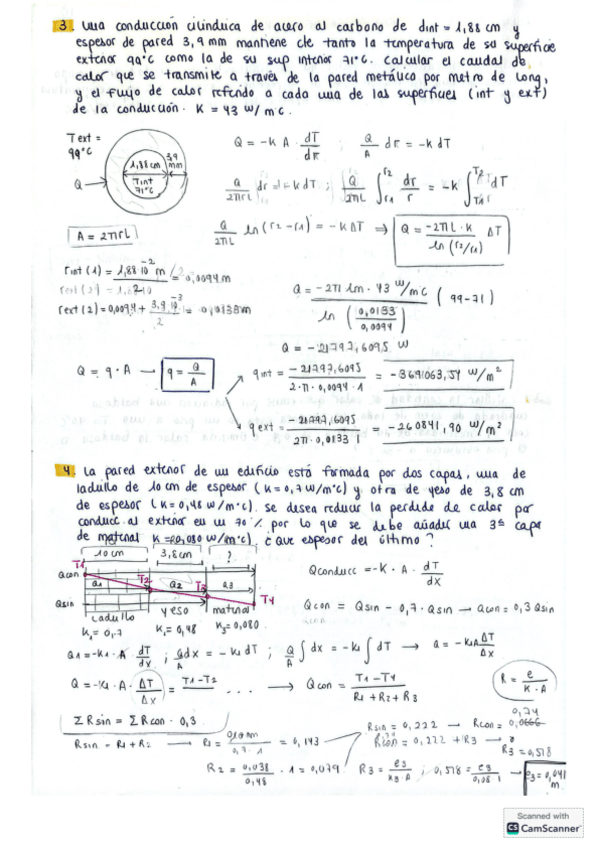 3. Una conducción cilíndrica de acero al carbono de dint = 1,88 cm y
espesor de pared 3,9 mm mantiene cte tanto la temperatura de su superficie
exterior 99°C como la de su sup interior 71°C. Calcular el caudal de
calor que se transmite a través de la pared metálica por metro de long,
y el flujo de calor referido a cada una de las superficies (int y ext)
de la conducción. K = 43 W/m°C.
Text = 99°C
1,88 cm
3,9 mm
Tint 71°C
Q
Q = -K A · dT/dr ; Q/A dr = -K dT
Q/2πrL dr = -K dT ; Q/2πL ∫r1 r2 dr/r = -K ∫T1 T2 dT
A = 2πrL
Q/2πL ln(r2-r1) = -K ΔT ⇒ Q = -2πL·K/ln(r2/r1) ΔT
rint (1) = 1,88·10⁻² m/2 = 0,0094 m
rext (2) = 0,0094 + 3,9·10⁻³/2 = 0,0133 m
Q = -2π 1m · 43 W/m°C / ln(0,0133/0,0094) (99-71)
Q = -21797,6095 W
Q = q · A → q = Q/A
qint = -21797,6095/2·π·0,0094·1 = -369063,57 W/m²
q ext = -21797,6095/2π·0,0133·1 = -260841,90 W/m²
4. La pared exterior de un edificio está formada por dos capas, una de
ladullo de 10 cm de espesor (K = 0,7 W/m°C) y otra de yeso de 3,8 cm
de espesor (K = 0,48 W/m°C). Se desea reducir la perdida de calor por
conducc. al exterior en un 70% por lo que se debe añadir una 3ª capa
de material K = 0,080 W/m°C). ¿Que espesor del último?
10 cm 3,8 cm ?
T1 T2 T3 T4
Qcon
Q1 Q2 Q3
Qsin
Ladullo yeso material
K1 = 0,7 K2 = 0,48 K3 = 0,080
Qconducc = -K · A · dT/dx
Qcon = Qsin - 0,7 · Qsin → Qcon = 0,3 Qsin
Q1 = -K1 · A dT/dx ; Q/A dx = -K1 dT ; Q/A ∫dx = -K1 ∫dT → Q = -K1A ΔT/Δx
Q = -K1 · A · ΔT/Δx = T1-T2 ... → Qcon = T1-T4/R1+R2+R3
R = e/K·A
ΣRsin = ΣRcon · 0,3
Rsin = 0,222 → Rcon = 0,74
Rsin = R1 + R2 → R1 = /0,7·1 = 0,143
Rcon = 0,222 + R3 →
R3 = 0,518
R2 = 0,038/0,48 · 1 = 0,079
R3 = e3/K3·A ; 0,518 = e3/0,08·1 → e3 = 0,041 m
Scanned with
CS CamScanner